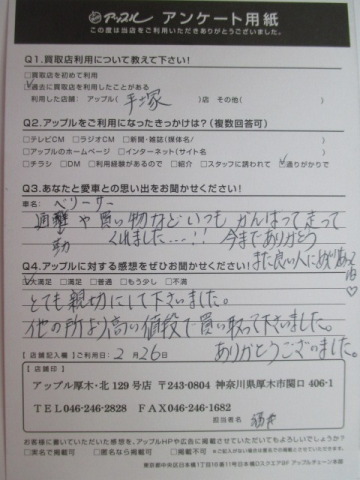 アップル アンケート用紙
この度は当店をご利用いただきありがとうございました。
Q1.買取店利用について教えて下さい!
□買取店を初めて利用
☑過去に買取店を利用したことがある
利用した店舗: アップル( 平塚 )店 その他( )
Q2.アップルをご利用になったきっかけは?(複数回答可)
□テレビCM □ラジオCM □新聞・雑誌(媒体名/ )
□アップルのホームページ □インターネット(サイト名 )
□チラシ □DM □利用経験があるので □紹介 □スタッフに誘われて ☑通りがかりで
Q3.あなたと愛車との思い出をお聞かせください!
車名: ベリーサ
通勤や買い物などいつもがんばって走って
くれました…!! 今までありがとう
また良い人に
Q4.アップルに対する感想をぜひお聞かせください!
☑大満足 □満足 □普通 □もう少し □不満
とても親切にして下さいました。
他の所より高い値段で買い取って下さいました。
ありがとうございました。
[店舗記入欄]ご利用日: 2月26日
【店舗印】
アップル厚木・北129号店 〒243-0804 神奈川県厚木市関口406-1
TEL046-246-2828 FAX046-246-1682
担当者名
お客様に書いていただいた感想を、アップルHPや広告に掲載させていただいてもよろしいでしょうか?
□実名で掲載可 □匿名なら掲載可 □掲載不可
東京都中央区日本橋1丁目16番11号日本橋Dスクエア9F アップルチェーン本部